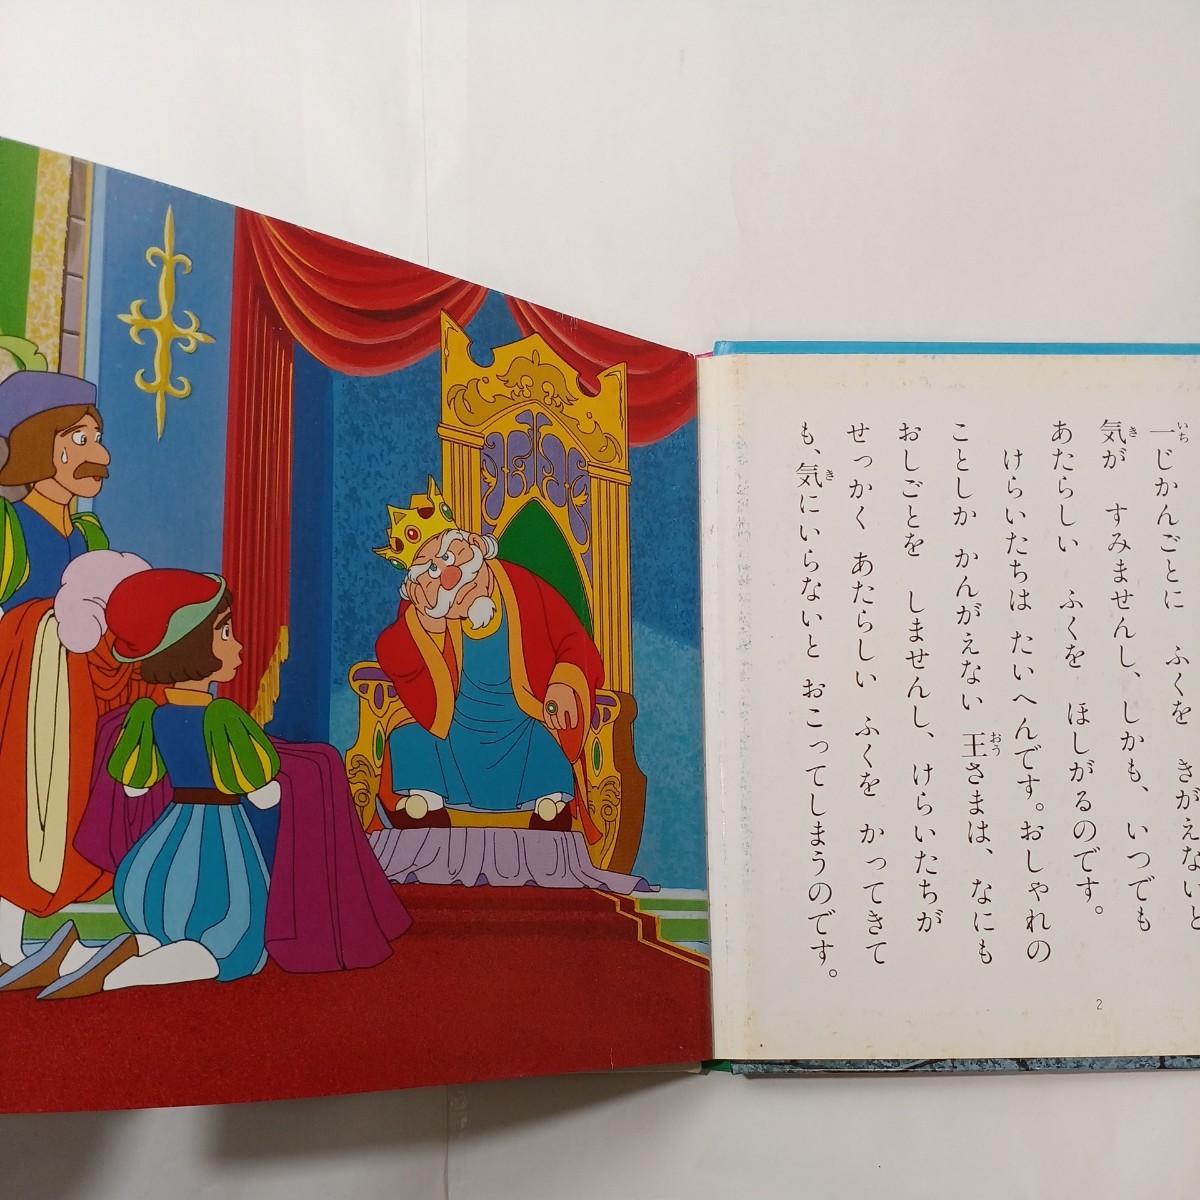 一じかんごとに ふくを きがえないと
気が すみませんし、しかも、いつでも
あたらしい ふくを ほしがるのです。
けらいたちは たいへんです。おしゃれの
ことしか かんがえない 王さまは、なにも
おしごとを しませんし、けらいたちが
せっかく あたらしい ふくを かってきて
も、気にいらないと おこってしまうのです。
2